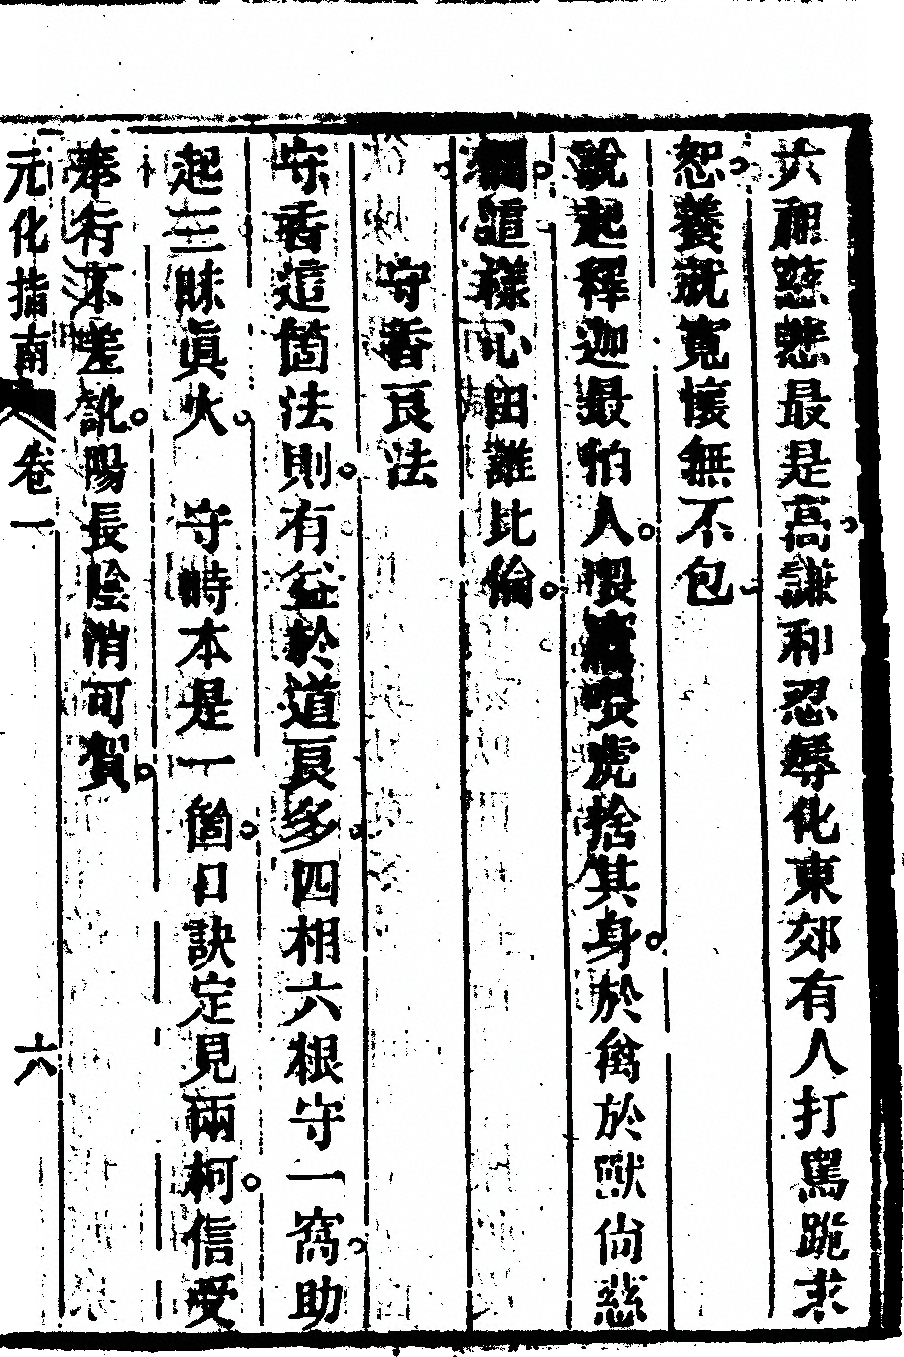 六祖慈悲最是高謙和忍辱化東郊有人打罵跪求
恕養就寬懷無不包
說起釋迦最怕人喂鷹喂虎捨其身於禽於獸尙慈
憫這樣心田誰比倫
守着良法
守着這箇法則有益於道良多四相六根守一窩助
起三昧眞火　守時本是一箇口訣定見兩柯信受
奉行不差訛陽長陰消可賀
元化指南　卷一　六